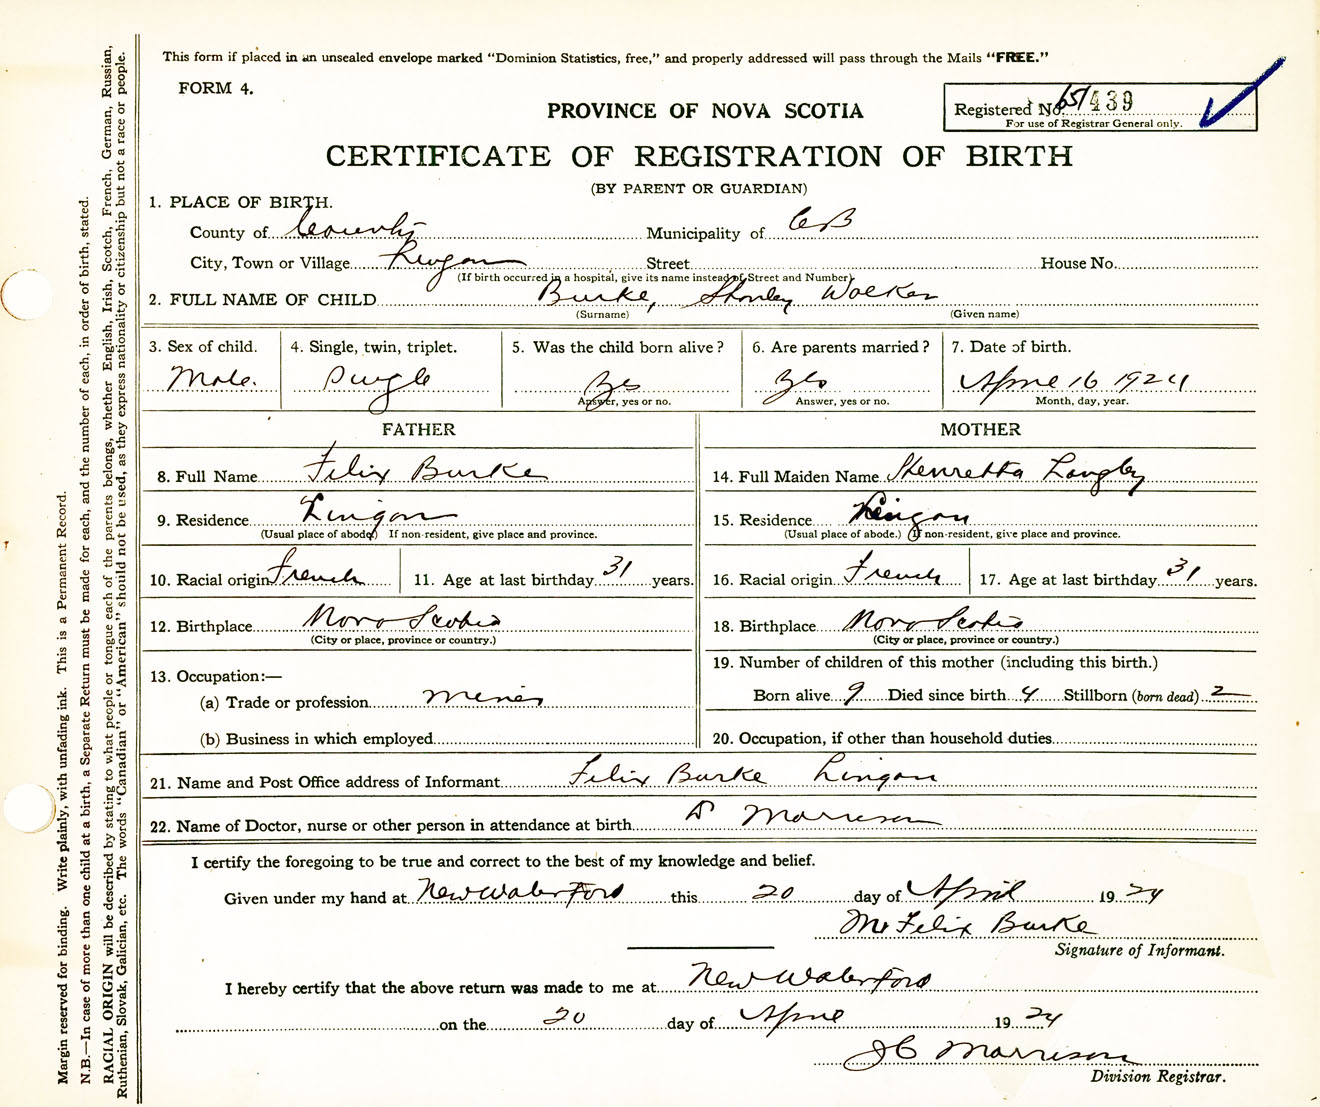 This form if placed in an unsealed envelope marked "Dominion Statistics, free," and properly addressed will pass through the Mails "FREE."
FORM 4.
PROVINCE OF NOVA SCOTIA
Registered No. 439
For use of Registrar General only.
CERTIFICATE OF REGISTRATION OF BIRTH
(BY PARENT OR GUARDIAN)
1. PLACE OF BIRTH.
County of County Municipality of CB
City, Town or Village Lingan Street House No.
(If birth occurred in a hospital, give its name instead of Street and Number).
2. FULL NAME OF CHILD Burke, Stanley Walker
(Surname) (Given name)
3. Sex of child. 4. Single, twin, triplet. 5. Was the child born alive? 6. Are parents married? 7. Date of birth.
Male. Single Yes Yes April 16 1924
Answer, yes or no. Answer, yes or no. Month, day, year.
FATHER MOTHER
8. Full Name Felix Burke 14. Full Maiden Name Henretta Langley
9. Residence Lingan 15. Residence Lingan
(Usual place of abode) If non-resident, give place and province. (Usual place of abode.) (If non-resident, give place and province.
10. Racial origin French 11. Age at last birthday 31 years. 16. Racial origin French 17. Age at last birthday 31 years.
12. Birthplace Nova Scotia 18. Birthplace Nova Scotia
(City or place, province or country.) (City or place, province or country.)
13. Occupation:— 19. Number of children of this mother (including this birth.)
(a) Trade or profession Miner Born alive 9 Died since birth 4 Stillborn (born dead) 2
(b) Business in which employed 20. Occupation, if other than household duties
21. Name and Post Office address of Informant Felix Burke Lingan
22. Name of Doctor, nurse or other person in attendance at birth Dr Morrison
I certify the foregoing to be true and correct to the best of my knowledge and belief.
Given under my hand at New Waterford this 20 day of April 1924
Mr Felix Burke
Signature of Informant.
I hereby certify that the above return was made to me at New Waterford
on the 20 day of April 1924
J C Morrison
Division Registrar.
Margin reserved for binding. Write plainly, with unfading ink. This is a Permanent Record.
N.B.—In case of more than one child at a birth, a Separate Return must be made for each, and the number of each, in order of birth, stated.
RACIAL ORIGIN will be described by stating to what people or tongue each of the parents belongs, whether English, Irish, Scotch, French, German, Russian,
Ruthenian, Slovak, Galician, etc. The words "Canadian" or "American" should not be used, as they express nationality or citizenship but not a race or people.